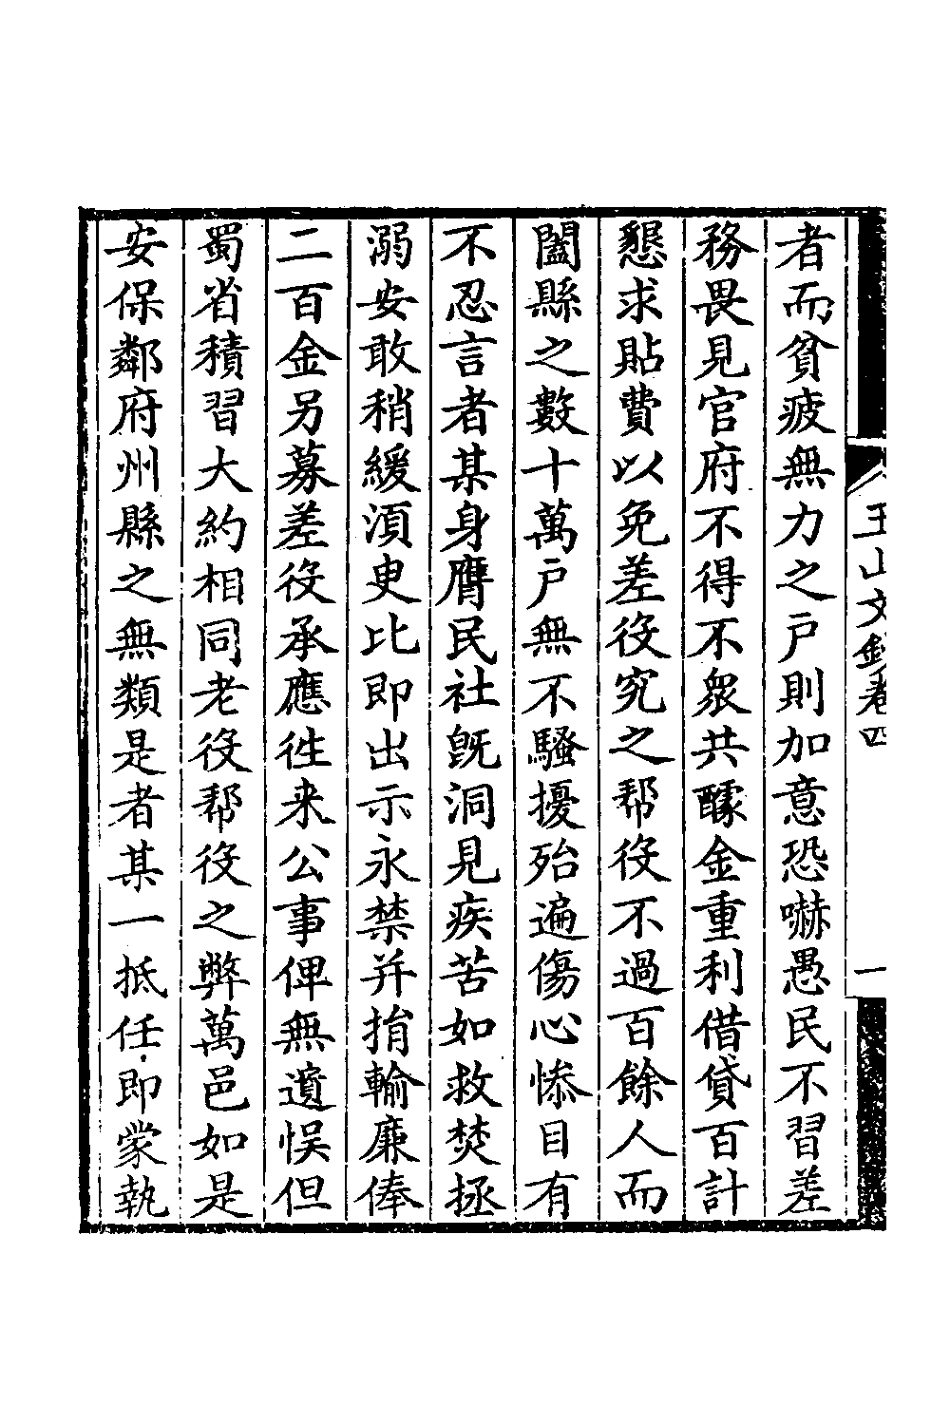 者而貧疲無力之戸則加意恐嚇愚民不習差
務畏見官府不得不衆共醵金重利借貸百計
懇求貼費以免差役究之帮役不過百餘人而
闔縣之數十萬戸無不騷擾殆遍傷心慘目有
不忍言者某身膺民社旣洞見疾苦如救焚拯
溺安敢稍緩湏臾比即出示永禁并捐輸廉俸
二百金另募差役承應徃来公事俾無遺悞但
蜀省積習大約相同老役帮役之弊萬邑如是
安保鄰府州縣之無類是者某一抵任即蒙執
玉山文鈔卷四
一